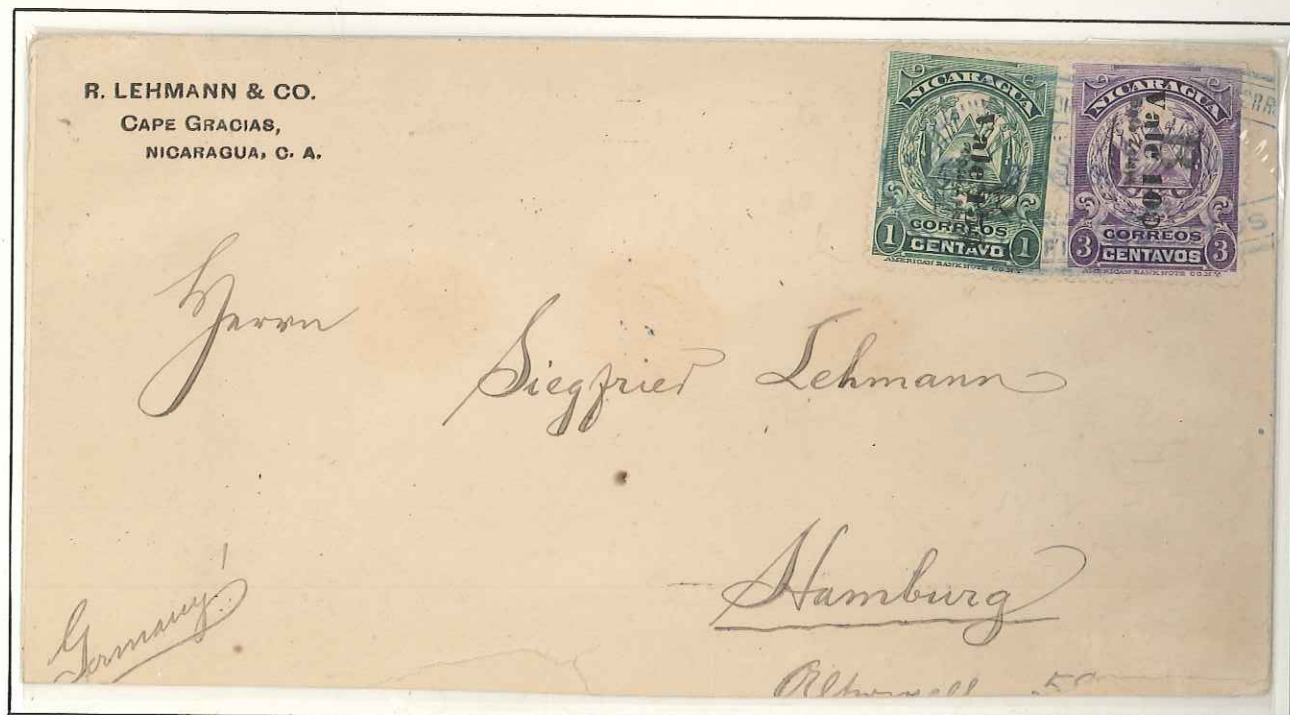 R. LEHMANN & CO.
CAPE GRACIAS,
NICARAGUA, C. A.
NICARAGUA
Vale
CORREOS
1 CENTAVO 1
AMERICAN BANK NOTE CO. N.Y.
NICARAGUA
Vale 10 c
CORREOS
3 CENTAVOS 3
AMERICAN BANK NOTE CO. N.Y.
Herrn
Siegfried Lehmann
Hamburg
Germany!